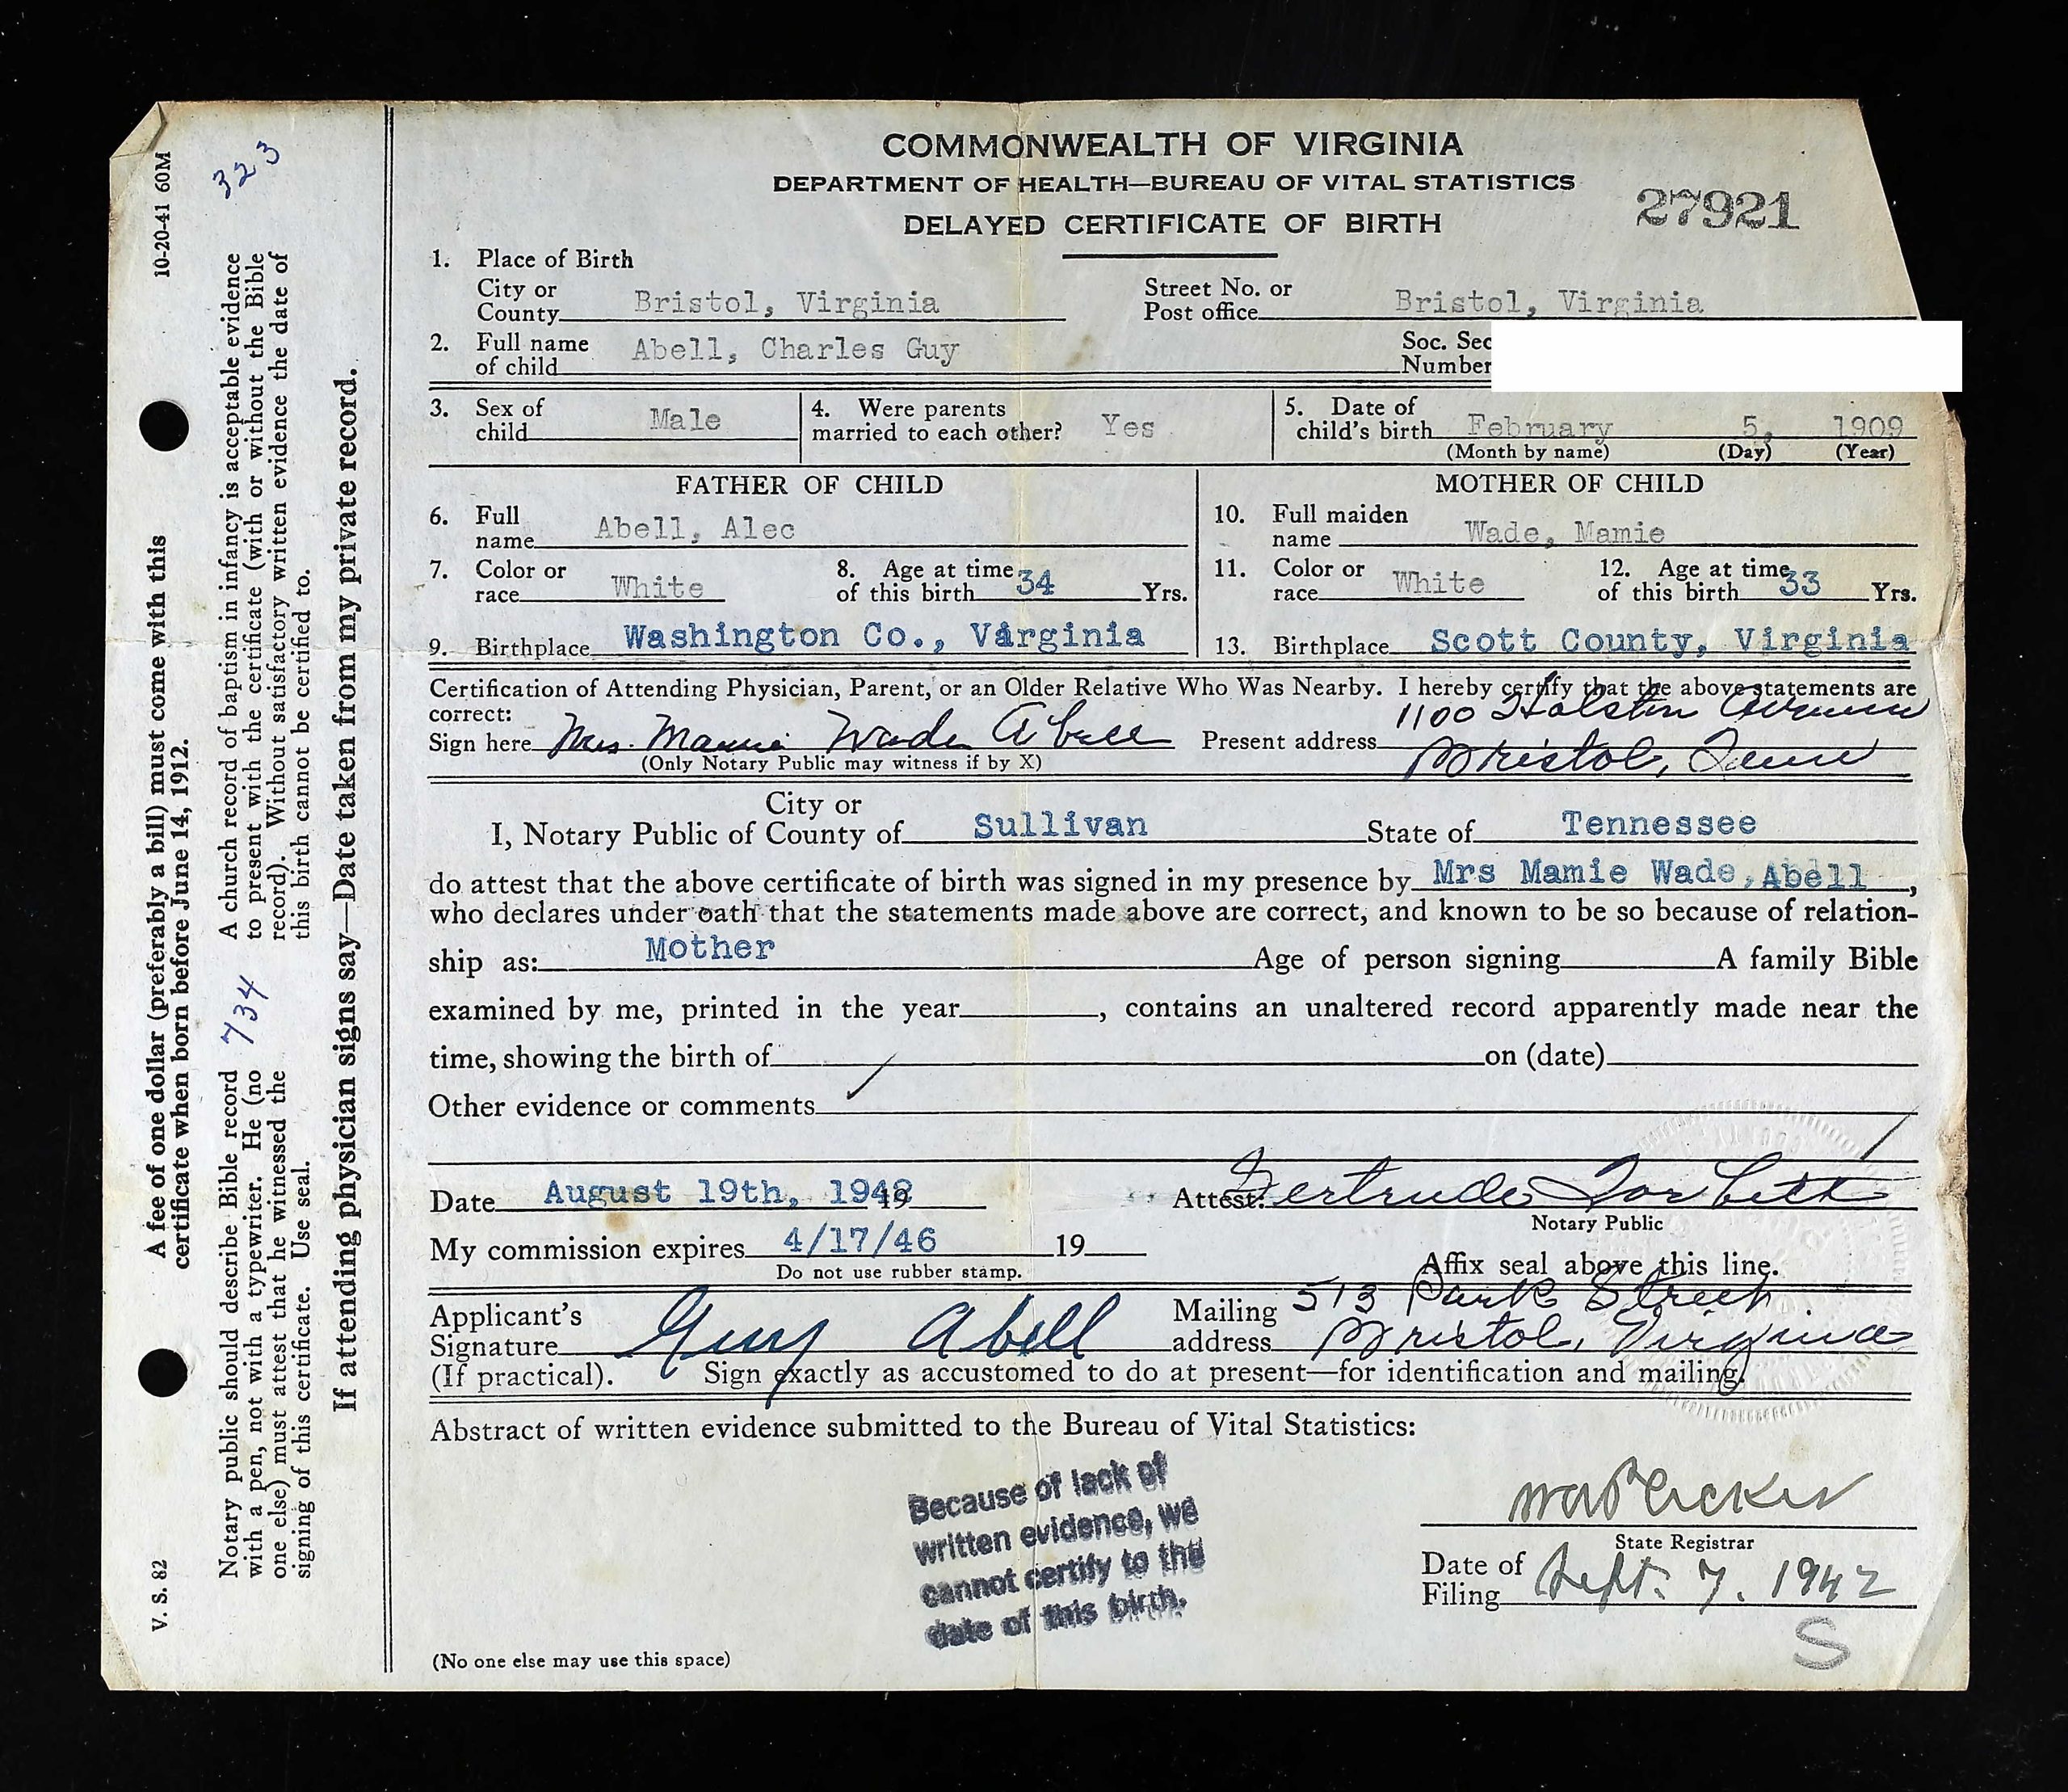 COMMONWEALTH OF VIRGINIA
DEPARTMENT OF HEALTH—BUREAU OF VITAL STATISTICS
27921
DELAYED CERTIFICATE OF BIRTH
1. Place of Birth
City or County Bristol, Virginia Street No. or Post office Bristol, Virginia
2. Full name of child Abell, Charles Guy Soc. Sec Number
3. Sex of child Male 4. Were parents married to each other? Yes 5. Date of child's birth February 5, 1909
(Month by name) (Day) (Year)
FATHER OF CHILD MOTHER OF CHILD
6. Full name Abell, Alec 10. Full maiden name Wade, Mamie
7. Color or race White 8. Age at time of this birth 34 Yrs. 11. Color or race White 12. Age at time of this birth 33 Yrs.
9. Birthplace Washington Co., Virginia 13. Birthplace Scott County, Virginia
Certification of Attending Physician, Parent, or an Older Relative Who Was Nearby. I hereby certify that the above statements are
correct: 1100 Holston Avenue
Sign here Mrs. Mamie Wade Abell Present address Bristol, Tenn
(Only Notary Public may witness if by X)
City or
I, Notary Public of County of Sullivan State of Tennessee
do attest that the above certificate of birth was signed in my presence by Mrs Mamie Wade, Abell,
who declares under oath that the statements made above are correct, and known to be so because of relation-
ship as: Mother Age of person signing A family Bible
examined by me, printed in the year , contains an unaltered record apparently made near the
time, showing the birth of on (date)
Other evidence or comments
Date August 19th, 1942 19 Attest: Gertrude Torbett
Notary Public
My commission expires 4/17/46 19
Do not use rubber stamp. Affix seal above this line.
Applicant's Signature Guy Abell Mailing address 513 Park Street
Bristol, Virginia
(If practical). Sign exactly as accustomed to do at present—for identification and mailing.
Abstract of written evidence submitted to the Bureau of Vital Statistics:
Because of lack of
written evidence, we
cannot certify to the
date of this birth.
State Registrar
Date of Filing Sept. 7. 1942
S
(No one else may use this space)
V. S. 82 10-20-41 60M
A fee of one dollar (preferably a bill) must come with this
certificate when born before June 14, 1912.
323
734
Notary public should describe Bible record
with a pen, not with a typewriter. He (no
one else) must attest that he witnessed the
signing of this certificate. Use seal.
A church record of baptism in infancy is acceptable evidence
to present with the certificate (with or without the Bible
record). Without satisfactory written evidence the date of
this birth cannot be certified to.
If attending physician signs say—Date taken from my private record.